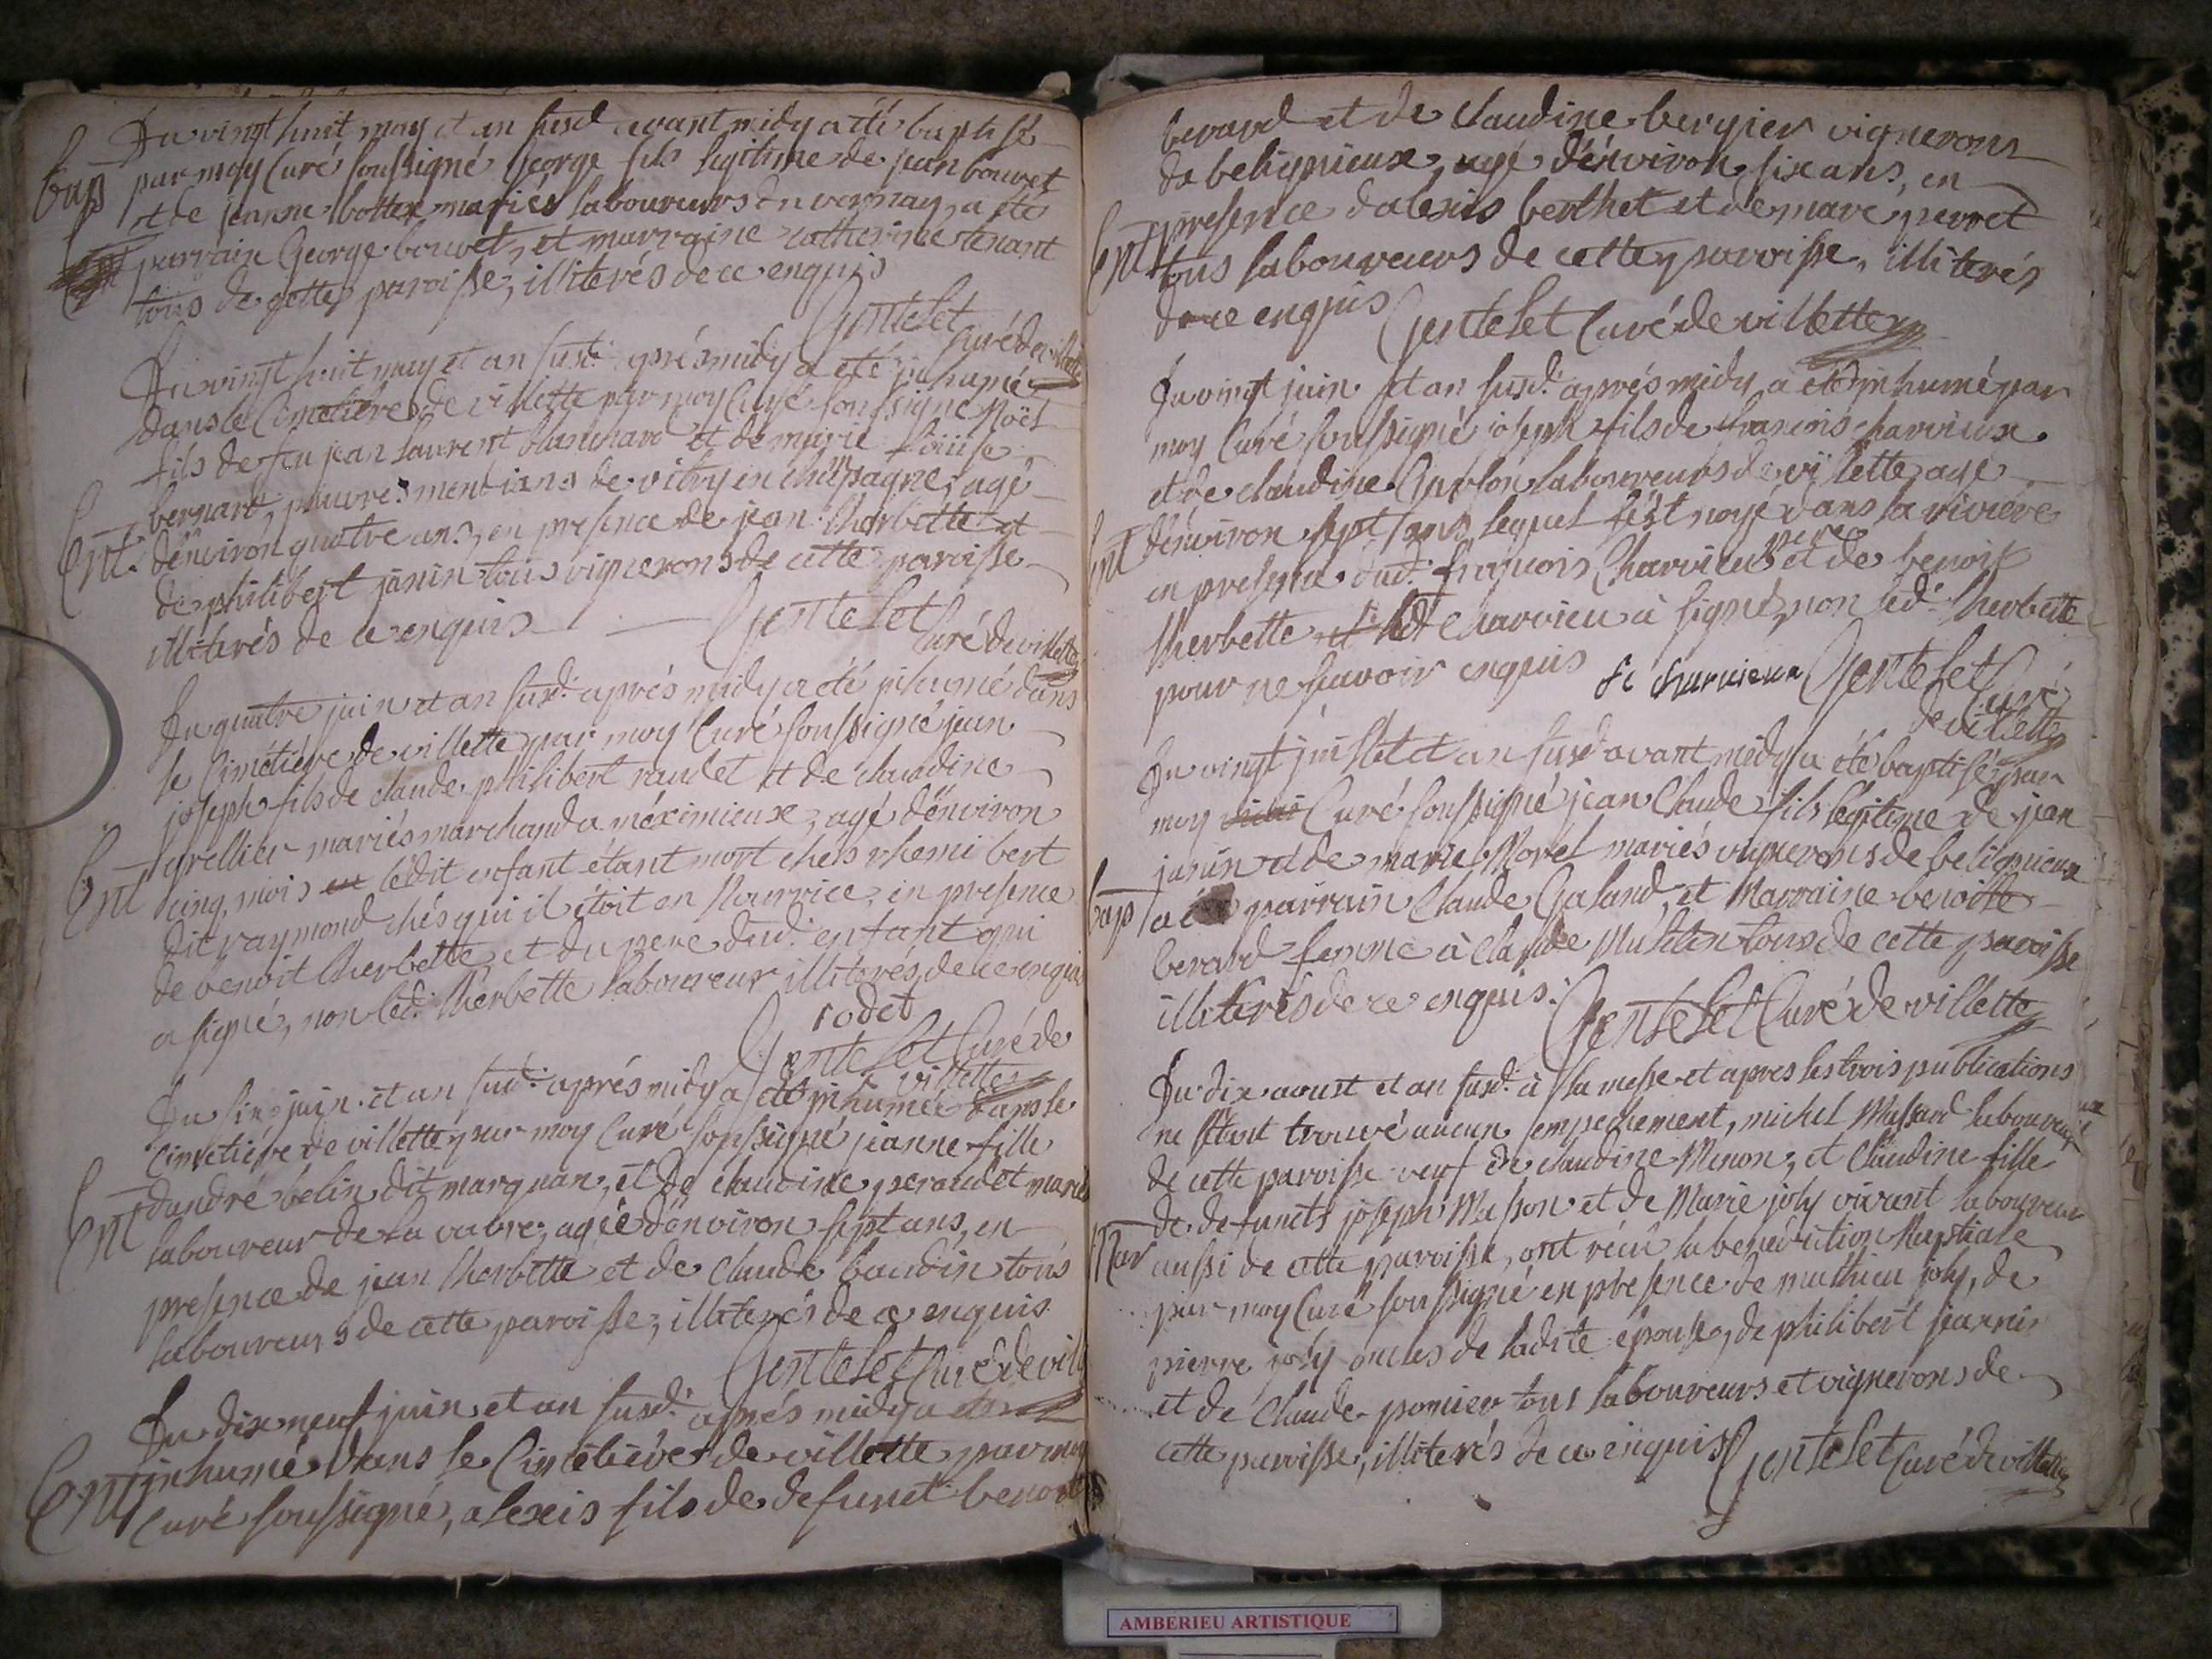 Du vingt huit may et an susd avant midy a été baptisé
Bap par moy Curé soussigné George fils legitime de jean bouvet
et de jeanne bottex mariés laboureurs du vernay, a été
parrain George bouvet, et marraine catherine tenant
tous de cette paroisse, illiterés de ce enquis
Gentelet
Curé de villette
Du vingt huit may et an susd: aprés midy a été inhumé
dans le Cimetiére de villette par moy Curé soussigné Noël
fils de feu jean laurent blanchard et de marie loüise
bernard, pauvres mentians de vitry en champagne, agé
Ent. d'environ quatre ans, en presence de jean therbette et
de philibert janin tous vignerons de cette paroisse
illiterés de ce enquis Gentelet
Curé de villette
Du quatre juin et an susd: aprés midy a été inhumé dans
le Cimétiére de villette par moy Curé soussigné jean
joseph fils de claude philibert raudet et de claudine
grellier mariés marchand a méximieux, agé d'environ
Ent cinq mois ledit enfant étant mort chés rhemi bert
dit raymond chés qui il étoit en Nourrice, en presence
de benoit therbette et du pere dud: enfant qui
a signé, non led: therbette laboureur illiterés de ce enquis
rodet
Gentelet Curé de
villette
Du six juin et an susd: aprés midy a été inhumée dans le
Cimetiére de villette par moy Curé soussigné jeanne fille
Ent d'andré belin dit marquan, et de claudine peraudet mariés
laboureur de la vavre, agée d'environ sept ans, en
presence de jean therbette et de claude baudin tous
laboureurs de cette paroisse, illiterés de ce enquis
Gentelet Curé de vill
Du dix neuf juin et an susd: aprés midy a été
Ent inhumé dans le Cimétiére de villette par moy
Curé soussigné, alexis fils de defunct benoit
berard et de claudine bergier vignerons
de beligneux, agé d'environ six ans, en
Ent presence d'alexis berthet et de marc perret
tous laboureurs de cette paroisse, illiterés
de ce enquis Gentelet Curé de villette
Du vingt juin et an susd: aprés midy a été inhumé par
moy Curé soussigné joseph fils de francois charvieux
et de claudine laboureurs de villette, agé
Ent d'environ sept ans lequel s'est noyé dans la riviére
en presence dud: françois Charvieu pere et de benoit
therbette led Charvieu à signé, non led: therbette
pour ne scavoir enquis fr charvieux Gentelet
Curé
de villette
Du vingt juillet et an susd avant midy a été baptisé par
moy Curé soussigné jean Claude fils légitime de jean
janin et de marie Morel mariés vignerons de beligneux
bap a été parrain Claude Galand, et Marraine benoite
berard femme à Claude tous de cette paroisse
illiterés de ce enquis. Gentelet Curé de villette
Du dix aoust et an susd: à la messe et apres les trois publications
ne s'étant trouvé aucun empechement, michel Massard laboureur
de cette paroisse veuf de claudine Menon, et Claudine fille
de defuncts joseph Masson et de Marie joly vivant laboureur
Mar aussi de cette paroisse, ont réçu la benediction Nuptiale
par moy Curé soussigné en presence de mathieu joly, de
pierre joly oncles de ladite épouse, de philibert jeannin
et de Claude pomier tous laboureurs et vignerons de
cette paroisse, illiterés de ce enquis Gentelet Curé de villette
AMBERIEU ARTISTIQUE